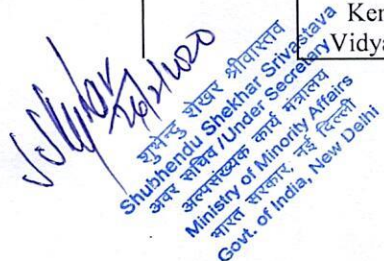 Ken
Vidya
26/2/2020
शुभेन्दु शेखर श्रीवास्तव
Shubhendu Shekhar Srivastava
अवर सचिव / Under Secretary
अल्पसंख्यक कार्य मंत्रालय
Ministry of Minority Affairs
भारत सरकार, नई दिल्ली
Govt. of India, New Delhi